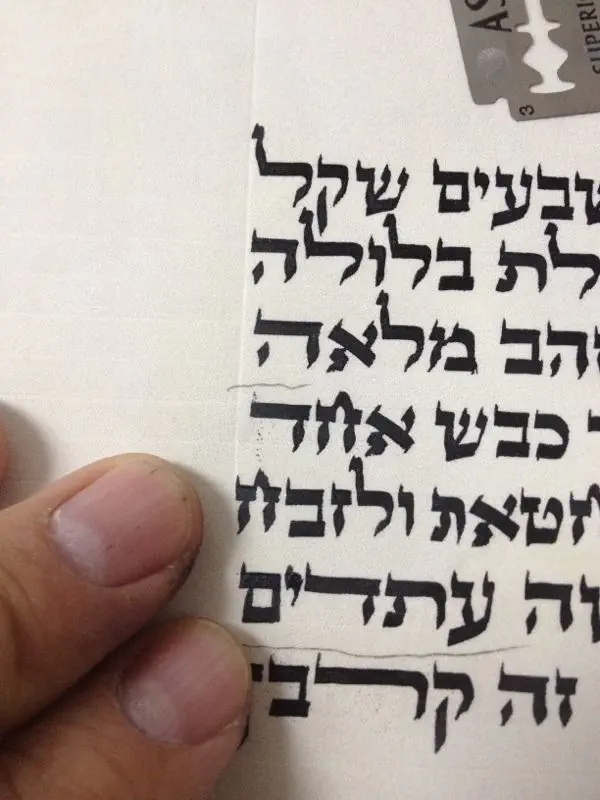 AS
SUPERI
3
שבעים שקל
לת בלולה
זהב מלאה
כבש אחד
חטאת ולזבח
שה עתדים
זה